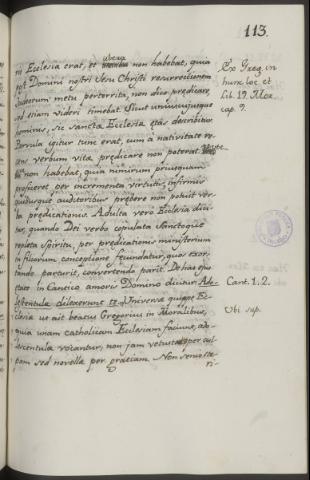 113.
ni Ecclesia erat, et ubera non habebat, quia
post Domini nostri Jesu Christi resurrectionem
Judæorum metu perterrita, non dico prædicare,
sed etiam videri timebat. Sicut uniuscujusque
hominis, sic sancta Ecclesia ætas describitur.
Parvula igitur tunc erat, cum à nativitate re-
cens verbum vitæ prædicare non poterat.
non habebat, quia nimirum priusquam
proficeret per incrementa virtutis, infirmis
quibusque auditoribus præbere non potuit ube-
ra prædicationis. Adulta vero Ecclesia dici-
tur, quando Dei verbo copulata Sanctoque
repleta Spiritu, per prædicationis mysterium
in filiorum conceptione foetundatur, quos exor-
tando parturit, convertendo parit. De hac ejus
ætate in Cantico amoris Domino dicitur: Ado-
lescentulæ dilexerunt te. Universæ quippe Ec-
clesiæ ut ait beatus Gregorius in Moralibus,
quia unam catholicam Ecclesiam faciunt, ado-
lescentulæ vocantur, non jam vetustæ per cul-
pam sed novellæ per gratiam. Non senectute
ri-
Ex Greg. in
hunc loc. et
Lib. 19. Mor.
cap. 9.
Cant. 1. 2.
Ubi sup.